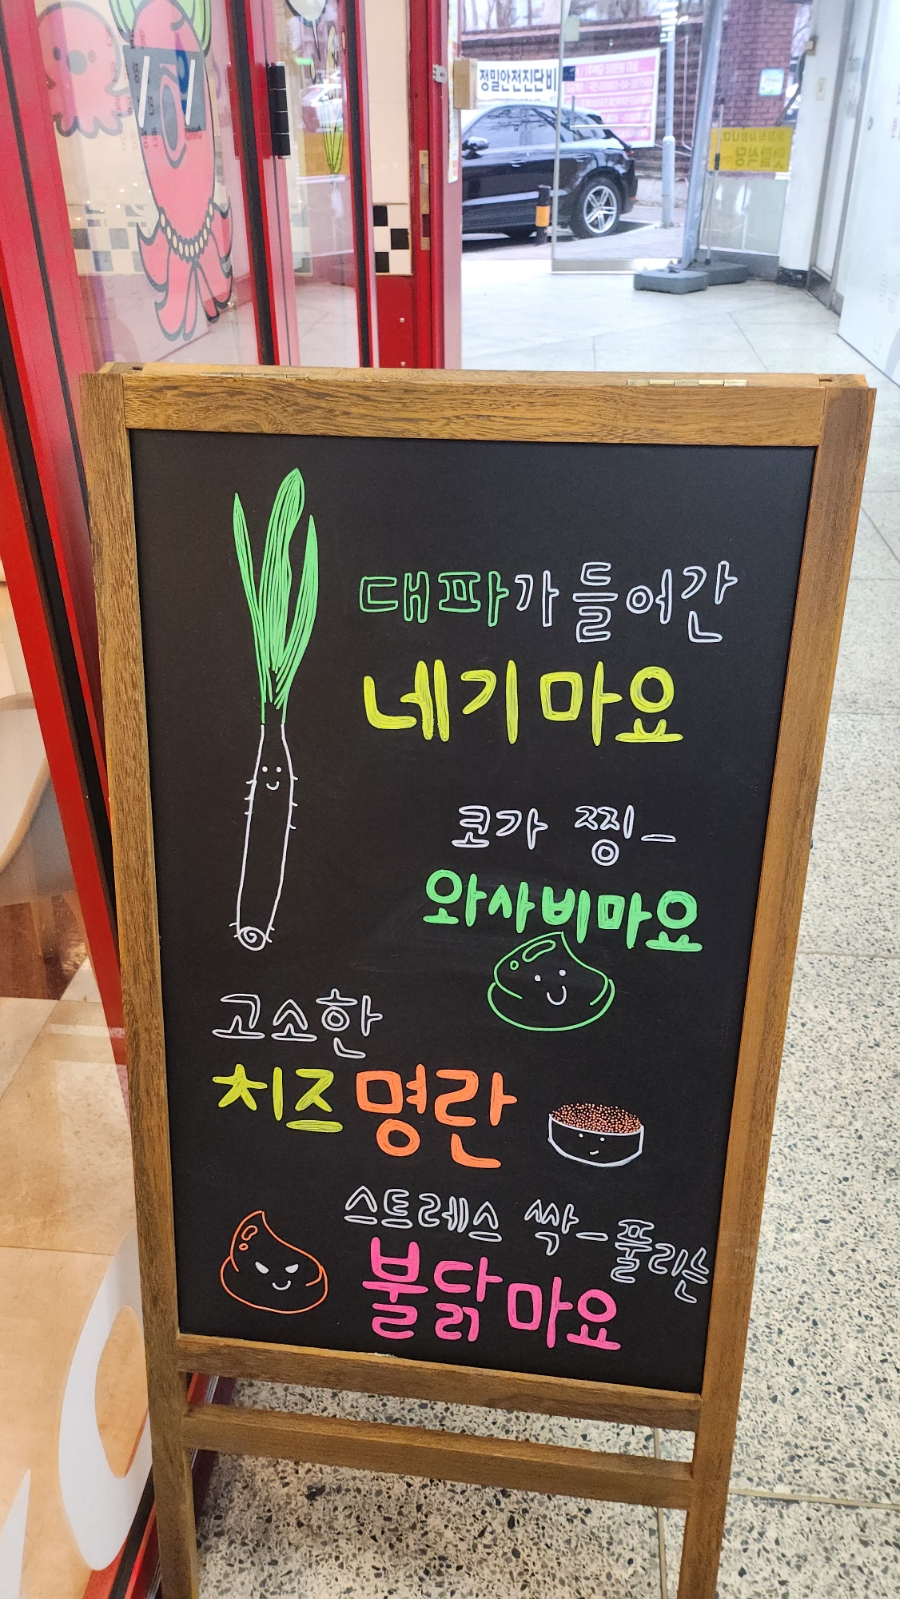 정밀안전진단비
대파가 들어간
네기마요
코가 찡-
와사비마요
고소한
치즈명란
스트레스 싹-풀리는
불닭마요